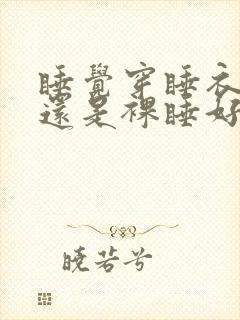 睡覺穿睡衣
還是裸睡好
曉若兮